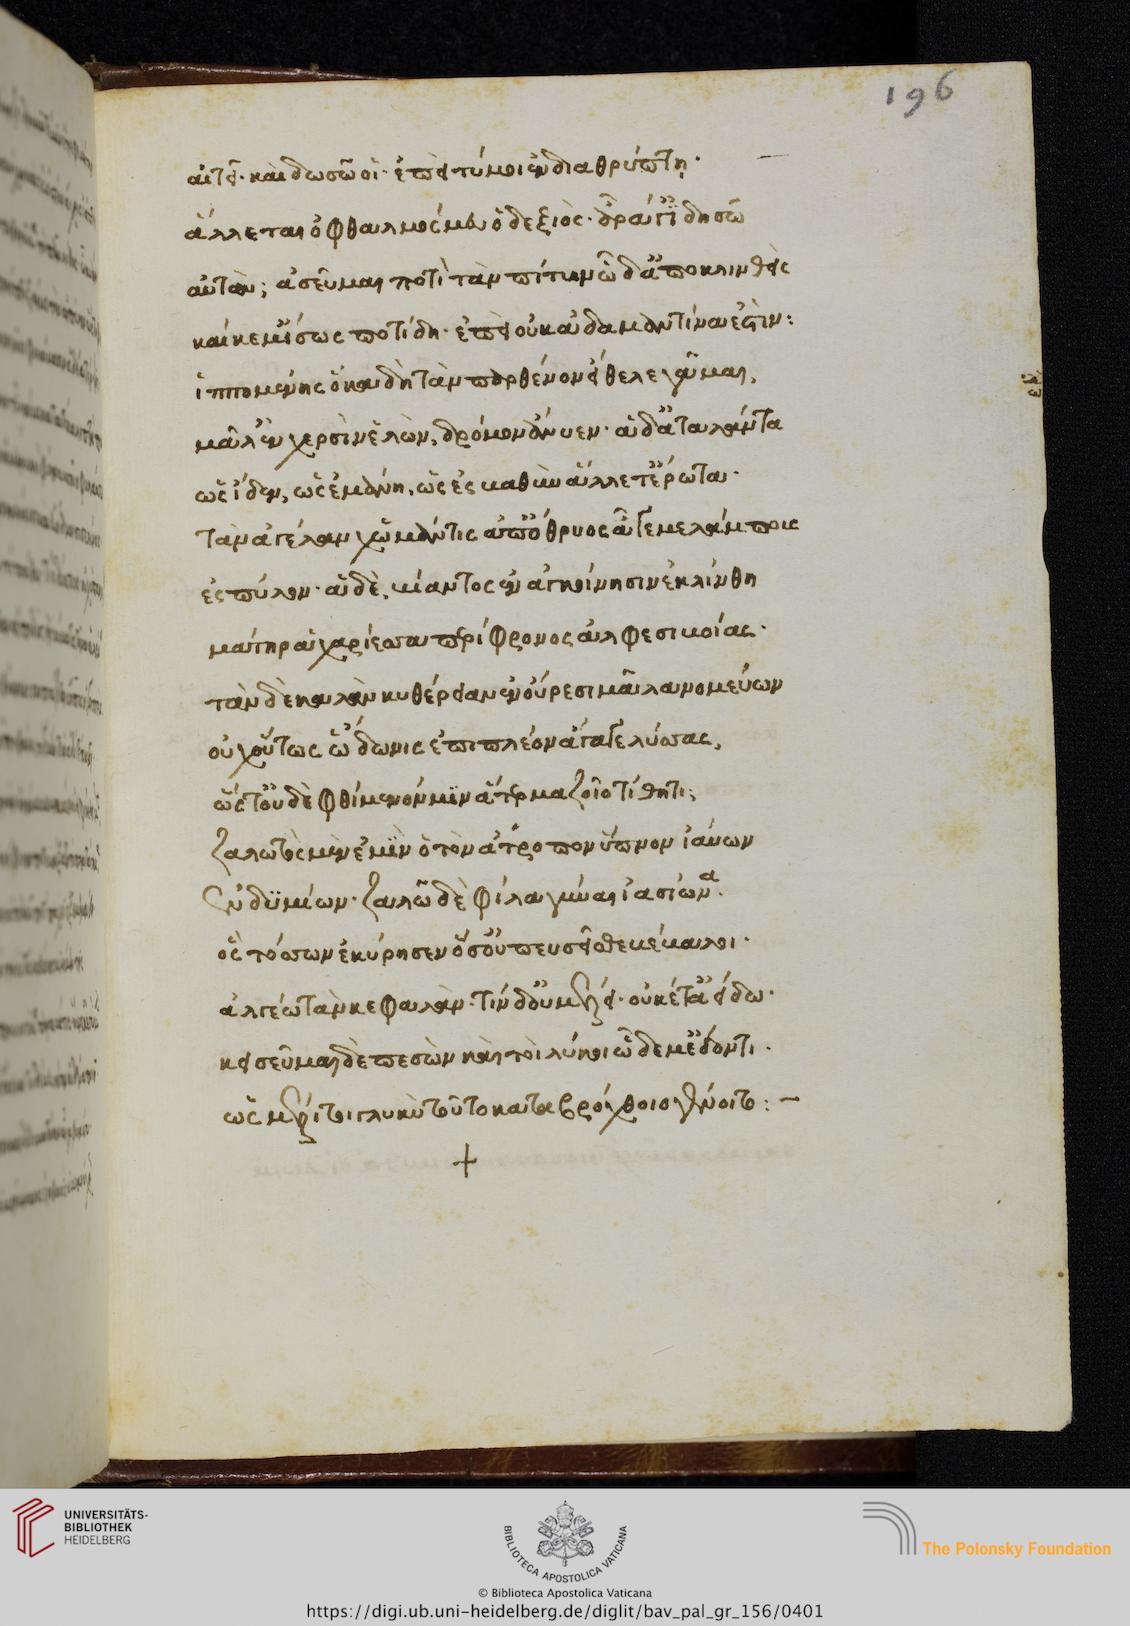 196
αἰτεῖ· καὶ δωσῶ οἱ· ἐπεὶ τύ μοι ἐνδιαθρύπτῃ·
ἅλλεται ὀφθαλμός μευ ὁ δεξιός· ἆρά γ' ἰδησῶ
αὐτάν; ἀσεῦμαι ποτὶ τὰν πίτυν ὧδ' ἀποκλινθείς
καί κέ μ' ἴσως ποτίδῃ· ἐπεὶ οὐκ ἀδαμαντίνα ἐστίν:
ἱππομένης ὅκα δὴ τὰν παρθένον ἤθελε γᾶμαι,
μᾶλ' ἐν χερσὶν ἑλὼν, δρόμον ἄνυεν· ἁ δ' ἀταλάντα
ὡς ἴδεν, ὣς ἐμάνη, ὣς ἐς βαθὺν ἅλλετ' ἔρωτα·
τὰν ἀγέλαν χὠ μάντις ἀπ' ὄθρυος ἆγε μελάμπους
ἐς πύλον· ἁ δὲ, βίαντος ἐν ἀγκοίνησιν ἐκλίνθη
μάτηρ ἁ χαρίεσσα περίφρονος ἀλφεσιβοίας·
τὰν δὲ καλὰν κυθέρειαν ἐν οὔρεσι μᾶλα νομεύων
οὐχ οὕτως ὤδωνις ἐπὶ πλέον ἄγαγε λύσσας,
ὥς τ' οὐδὲ φθίμενόν μιν ἄτερ μαζοῖο τίθητι;
ζαλωτὸς μὲν ἐμὶν ὁ τὸν ἄτροπον ὕπνον ἰαύων
ἐνδυμίων· ζαλῶ δὲ φίλα γύναι ἰασίωνα·
ὃς τόσσων ἐκύρησεν ὅσ' οὐ πευσεῖσθε βέβαλοι·
ἀλγέω τὰν κεφαλάν· τὶν δ' οὐ μέλει· οὐκέτ' ἀείδω·
κεισεῦμαι δὲ πεσὼν καὶ τοὶ λύκοι ὧδέ μ' ἔδονται·
ὡς μέλι τοι γλυκὺ τοῦτο κατὰ βρόχθοιο γένοιτο: –
+
UNIVERSITÄTS-
BIBLIOTHEK
HEIDELBERG
BIBLIOTECA APOSTOLICA VATICANA
The Polonsky Foundation
© Biblioteca Apostolica Vaticana
https://digi.ub.uni-heidelberg.de/diglit/bav_pal_gr_156/0401